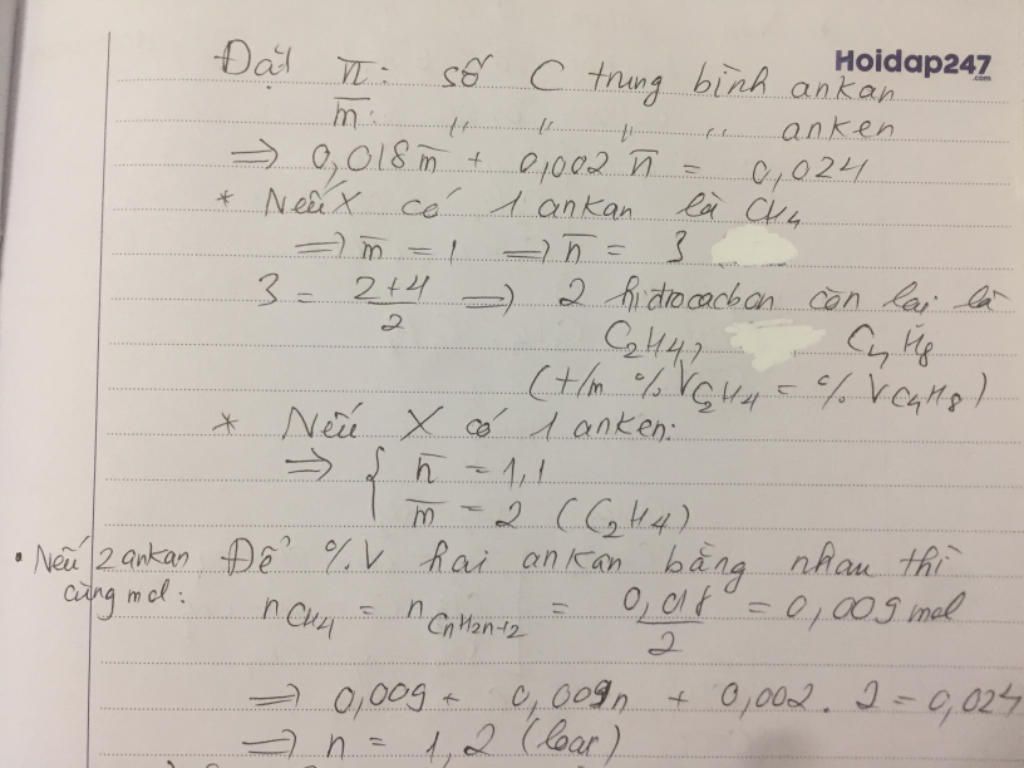 Hoidap247
.com
Đặt n̅: số C trung bình ankan
m̅: " " " " anken
=> 0,018m̅ + 0,002n̅ = 0,024
* Nếu X có 1 ankan là CH4
=> m̅ = 1 => n̅ = 3
3 = (2+4)/2 => 2 hiđrocacbon còn lại là
C2H4, C4H8
(t/m %VC2H4 = %VC4H8)
* Nếu X có 1 anken:
=> { n̅ = 1,1
m̅ = 2 (C2H4)
• Nếu 2 ankan cùng mol:
Để %V hai ankan bằng nhau thì
nCH4 = nCnH2n+2 = 0,018/2 = 0,009 mol
=> 0,009 + 0,009n + 0,002 . 2 = 0,024
=> n = 1,2 (loại)